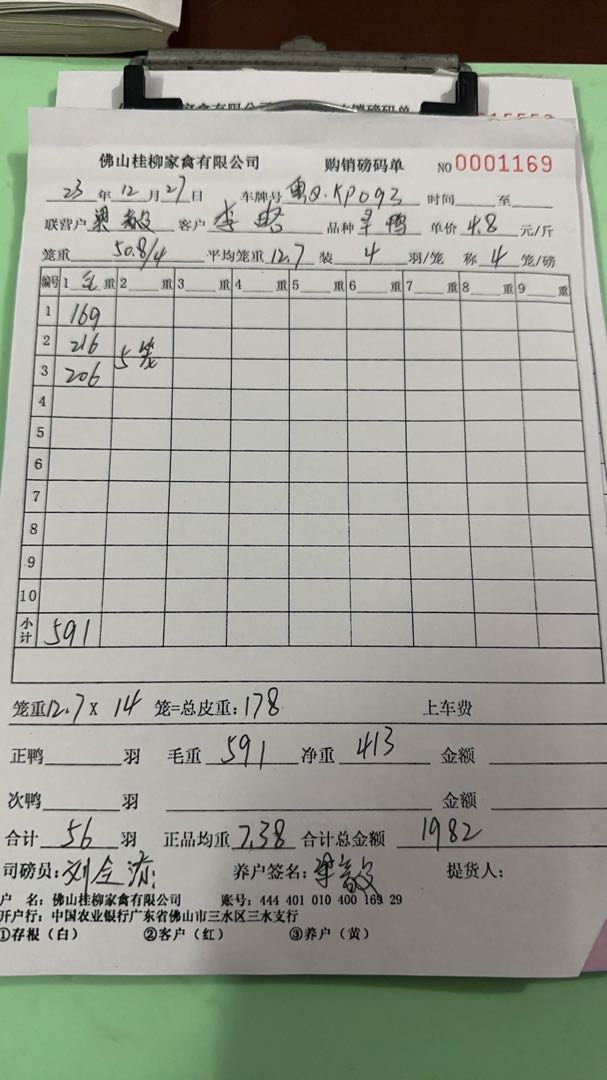 佛山桂柳家禽有限公司 购销磅码单 NO 0001169
23 年 12 月 27 日 车牌号 粤Q.KP093 时间 至
联营户 梁敬 客户 李 品种 旱鸭 单价 4.8 元/斤
笼重 50.8/4 平均笼重 12.7 装 4 羽/笼 称 4 笼/磅
编号 1 毛 重 2 重 3 重 4 重 5 重 6 重 7 重 8 重 9 重
1 169
2 216 5笼
3 206
4
5
6
7
8
9
10
小计 591
笼重 12.7 X 14 笼=总皮重: 178 上车费
正鸭 羽 毛重 591 净重 413 金额
次鸭 羽 金额
合计 56 羽 正品均重 7.38 合计总金额 1982
司磅员: 刘 养户签名: 梁敬 提货人:
户 名: 佛山桂柳家禽有限公司 账号: 444 401 010 400 169 29
开户行: 中国农业银行广东省佛山市三水区三水支行
①存根（白） ②客户（红） ③养户（黄）